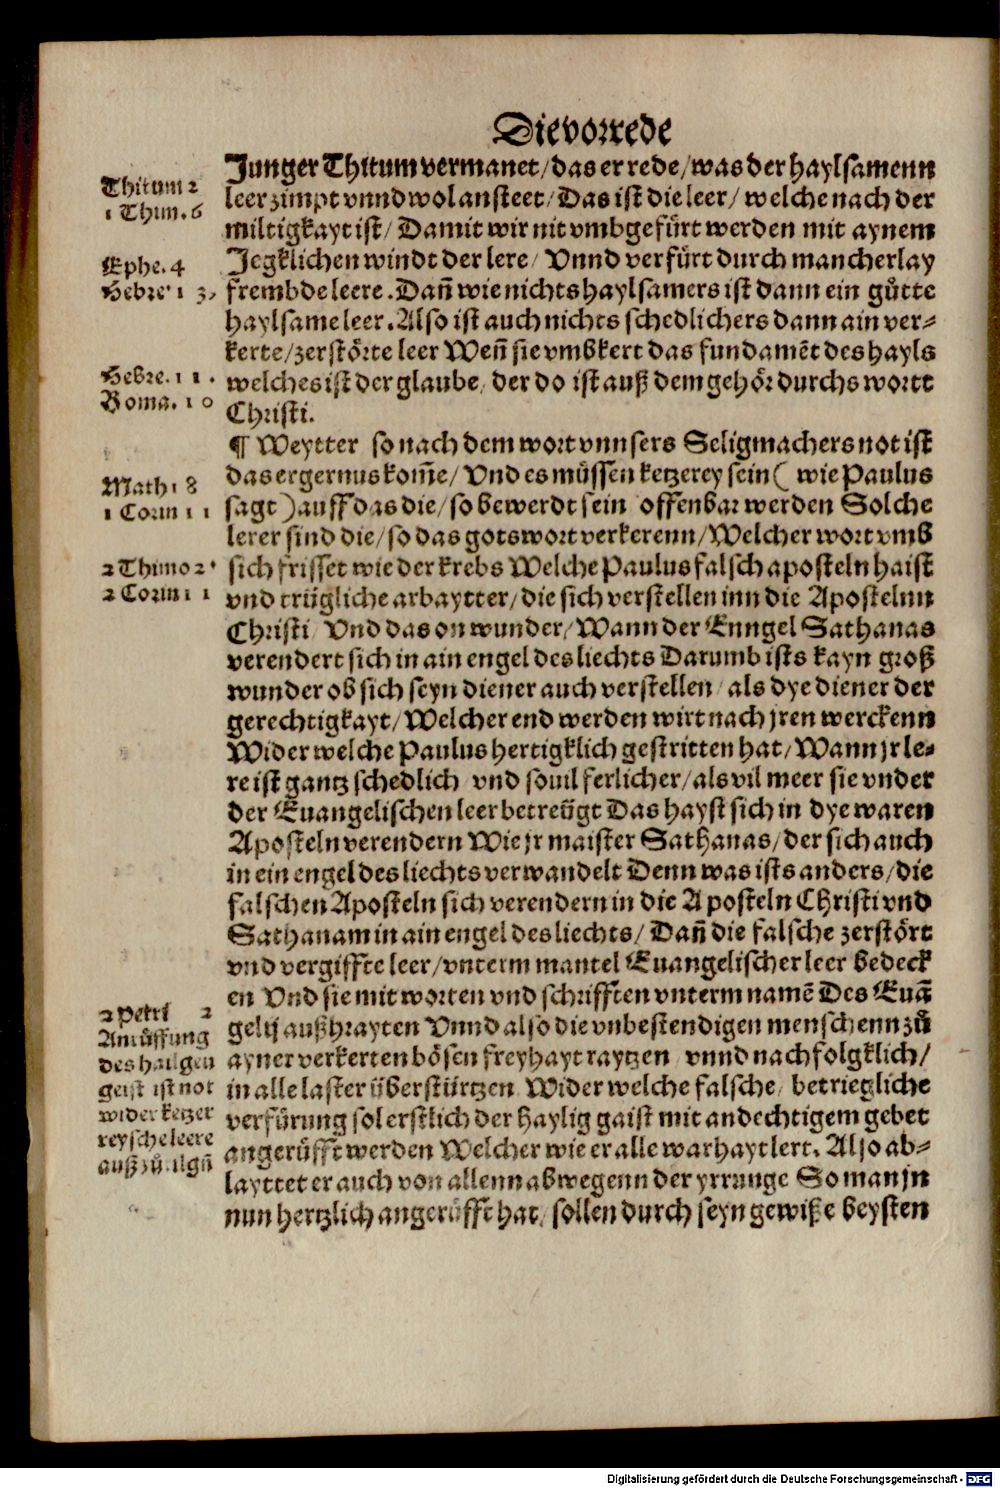 Die vorrede
Thitum 2
1 Thim. 6
Ephe. 4
Hebre 1 3,
Hebre. 1 1.
Roma. 1 0
Math 1 8
1 Corin 1 1
2 Thimo 2.
2 Corin 1 1
2 Petri 2
Anrüffung
des hailgen
geist ist not
wider ketzer
reysche leere
auß zů tilgñ
Junger Thitum vermanet/ das er rede/ was der haylsamenn
leer zimpt vnnd wol ansteet/ Das ist die leer/ welche nach der
miltigkayt ist/ Damit wir nit vmbgefürt werden mit aynem
Jegklichen windt der lere/ Vnnd verfürt durch mancherlay
frembde leere. Dañ wie nichts haylsamers ist dann ein gůtte
haylsame leer. Also ist auch nichts schedlichers dann ain ver⸗
kerte/ zerstörte leer Weñ sie vmbkert das fundamēt des hayls
welches ist der glaube/ der do ist auß dem gehör durchs wortt
Christi.
¶ Weytter so nach dem wort vnnsers Seligmachers not ist
das ergernus kom̃e/ Vnd es müssen ketzerey sein ( wie Paulus
sagt ) auff das die/ so bewerdt sein offenbar werden Solche
lerer sind die/ so das gotswort verkerenn/ Welcher wort vmb
sich frisset wie der krebs Welche Paulus falsch aposteln haist
vnd trügliche arbaytter/ die sich verstellen inn die Apostelnn
Christi/ Vnd das on wunder/ Wann der Enngel Sathanas
verendert sich in ain engel des liechts Darumb ists kayn groß
wunder ob sich seyn diener auch verstellen/ als dye diener der
gerechtigkayt/ Welcher end werden wirt nach jren werckenn
Wider welche Paulus hertigklich gestritten hat/ Wann jr le⸗
re ist gantz schedlich vnd souil ferlicher/ als vil meer sie vnder
der Euangelischen leer betreügt Das hayst sich in dye waren
Aposteln verendern Wie jr maister Sathanas/ der sich auch
in ein engel des liechts verwandelt Denn was ists anders/ die
falschen Aposteln sich verendern in die Aposteln Christi vnd
Sathanam in ain engel des liechts/ Dañ die falsche zerstört
vnd vergiffte leer/ vnterm mantel Euangelischer leer bedeck
en Vnd sie mit worten vnd schrifften vnterm namē Des Euā
gelij außbrayten Vnnd also die vnbestendigen menschenn zů
ayner verkerten bösen freyhayt raytzen vnnd nachfolgklich/
in alle laster überstürtzen Wider welche falsche/ betriegliche
verfürung sol erstlich der haylig gaist mit andechtigem gebet
angerüfft werden Welcher wie er alle warhayt lert. Also ab⸗
layttet er auch von allenn abwegenn der yrrunge So man jn
nun hertzlich angerüfft hat/ sollen durch seyn gewiße beysten
Digitalisierung gefördert durch die Deutsche Forschungsgemeinschaft - DFG